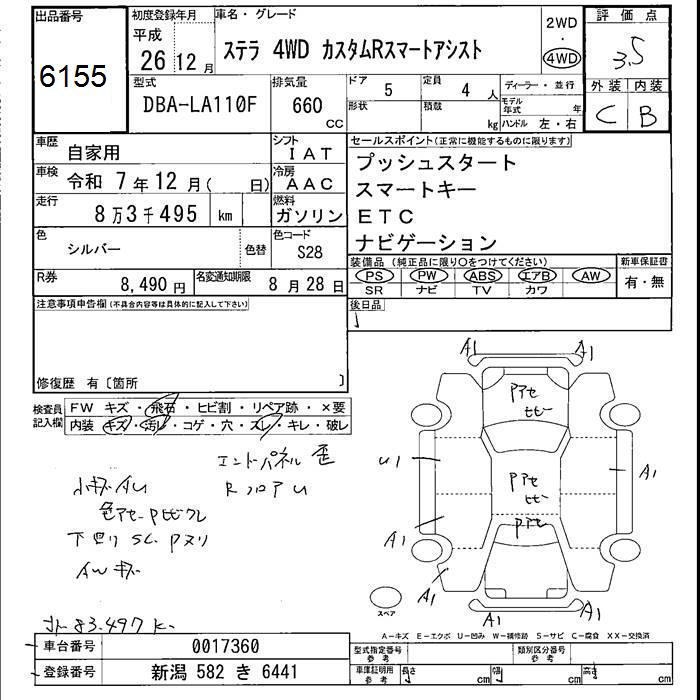 出品番号
6155
初度登録年月
平成
26 12 月
車名・グレード
ステラ 4WD カスタムRスマートアシスト
2WD
・
4WD
評価点
3.5
外装 内装
C B
型式
DBA-LA110F
排気量
660
cc
ドア
5
形状
定員
4 人
積載
kg
ディーラー・並行
モデル年式 年
ハンドル 左・右
車歴
自家用
シフト
IAT
車検
令和 7年 12月( 日)
冷房
AAC
走行
8万3千495 km
燃料
ガソリン
色
シルバー
色替
色コード
S28
R券
8,490 円
名変通知期限
8月28日
セールスポイント(正常に機能するものに限ります)
プッシュスタート
スマートキー
ETC
ナビゲーション
装備品 (純正品に限り○をつけてください)
PS PW ABS エアB AW
SR ナビ TV カワ
新車保証書
有・無
後日品
注意事項申告欄(不具合内容等は具体的に記入して下さい)
修復歴 有〔箇所 〕
検査員記入欄
FW キズ・飛石・ヒビ割・リペア跡・×要
内装 キズ・汚レ・コゲ・穴・スレ・キレ・破レ
エンドパネル 歪
RフロアU
小キズAU
色アセ・Pヒビワレ
下回りSC、Pヌリ
AWキズ
83.497 K
A1 A1
Pアセ
ヒビー
U1
Pアセ
ヒビー
A1
Pアセ
A1
A1
A1 A1
スペア
A−キズ E−エクボ U−凹み W−補修跡 S−サビ C−腐食 XX−交換済
車台番号
0017360
登録番号
新潟 582 き 6441
型式指定番号
参考
類別区分番号
参考
車庫証明用
参考
長さ cm
幅 cm
高さ cm